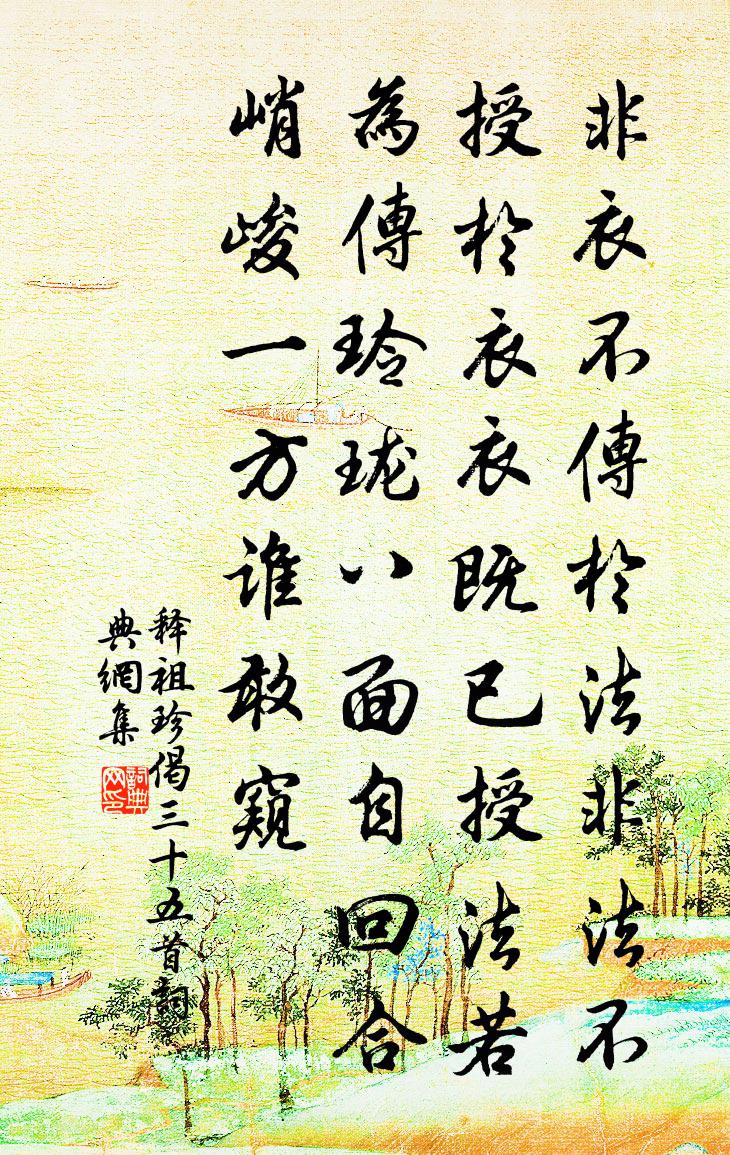 非衣不傳於法非法不
授於衣衣既已授法若
為傳玲珑八面自回合
峭峻一方谁敢窺
释祖珍偈三十五首詞
典網集
詞典
网印